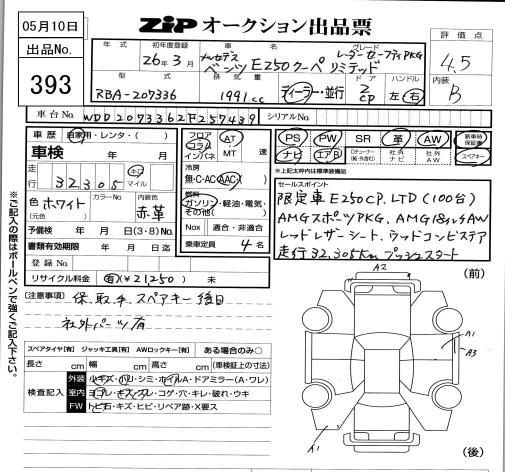 05月10日
ZiP オークション出品票
出品No.
393
年式
初年度登録
26年3月
車名
メルセデス ベンツ E250クーペ リミテッド
グレード
レーダーセーフティPKG
評価点
4.5
内装
B
型式
RBA-207336
排気量
1991cc
ディーラー・並行
ドア
2 cp
ハンドル
左 右
車台No.
WDD2073362F257439
シリアルNo.
車歴 自家用・レンタ・( )
車検 年 月
走行 32,305 km マイル
色 ホワイト
(元色)
カラーNo.
内装色
赤・革
予備検 年 月 日(3・8)No.
書類有効期限 年 月 日迄
登録No.
リサイクル料金 有 ¥21,250 未
フロア コラム インパネ
AT・MT 速
冷房
無・C・AC・AAC
燃料
ガソリン・軽油・電気・その他( )
Nox 適合・非適合
乗車定員 4名
PS PW SR 革 AW
ナビ エアB
Dチューナー(純・外含む)
社外ナビ
社外AW
新車時保証書
スペアキー
*上記太枠内は標準装備品
セールスポイント
限定車E250CP.LTD(100台)
AMGスポーツPKG、AMG18インチAW
レッドレザーシート、ウッドコンビステア
走行32,305km プッシュスタート
[注意事項] 保、取、手、スペアキー後日
社外パーツ有
スペアタイヤ[有] ジャッキ工具[有] AWロックキー[有] ある場合のみ○
長さ cm 幅 cm 高さ cm (車検証上の寸法)
検査記入
外装 小キズ・小凹・シミ・ホイルA・ドアミラー(A・ワレ)
室内 ヨゴレ・キズ・スレ・コゲ・穴・キレ・破れ・ウキ
FW トビ石・キズ・ヒビ・リペア跡・X要ス
※ご記入の際はボールペンで強くご記入下さい。
(前)
A2
A1
A3
A1
(後)